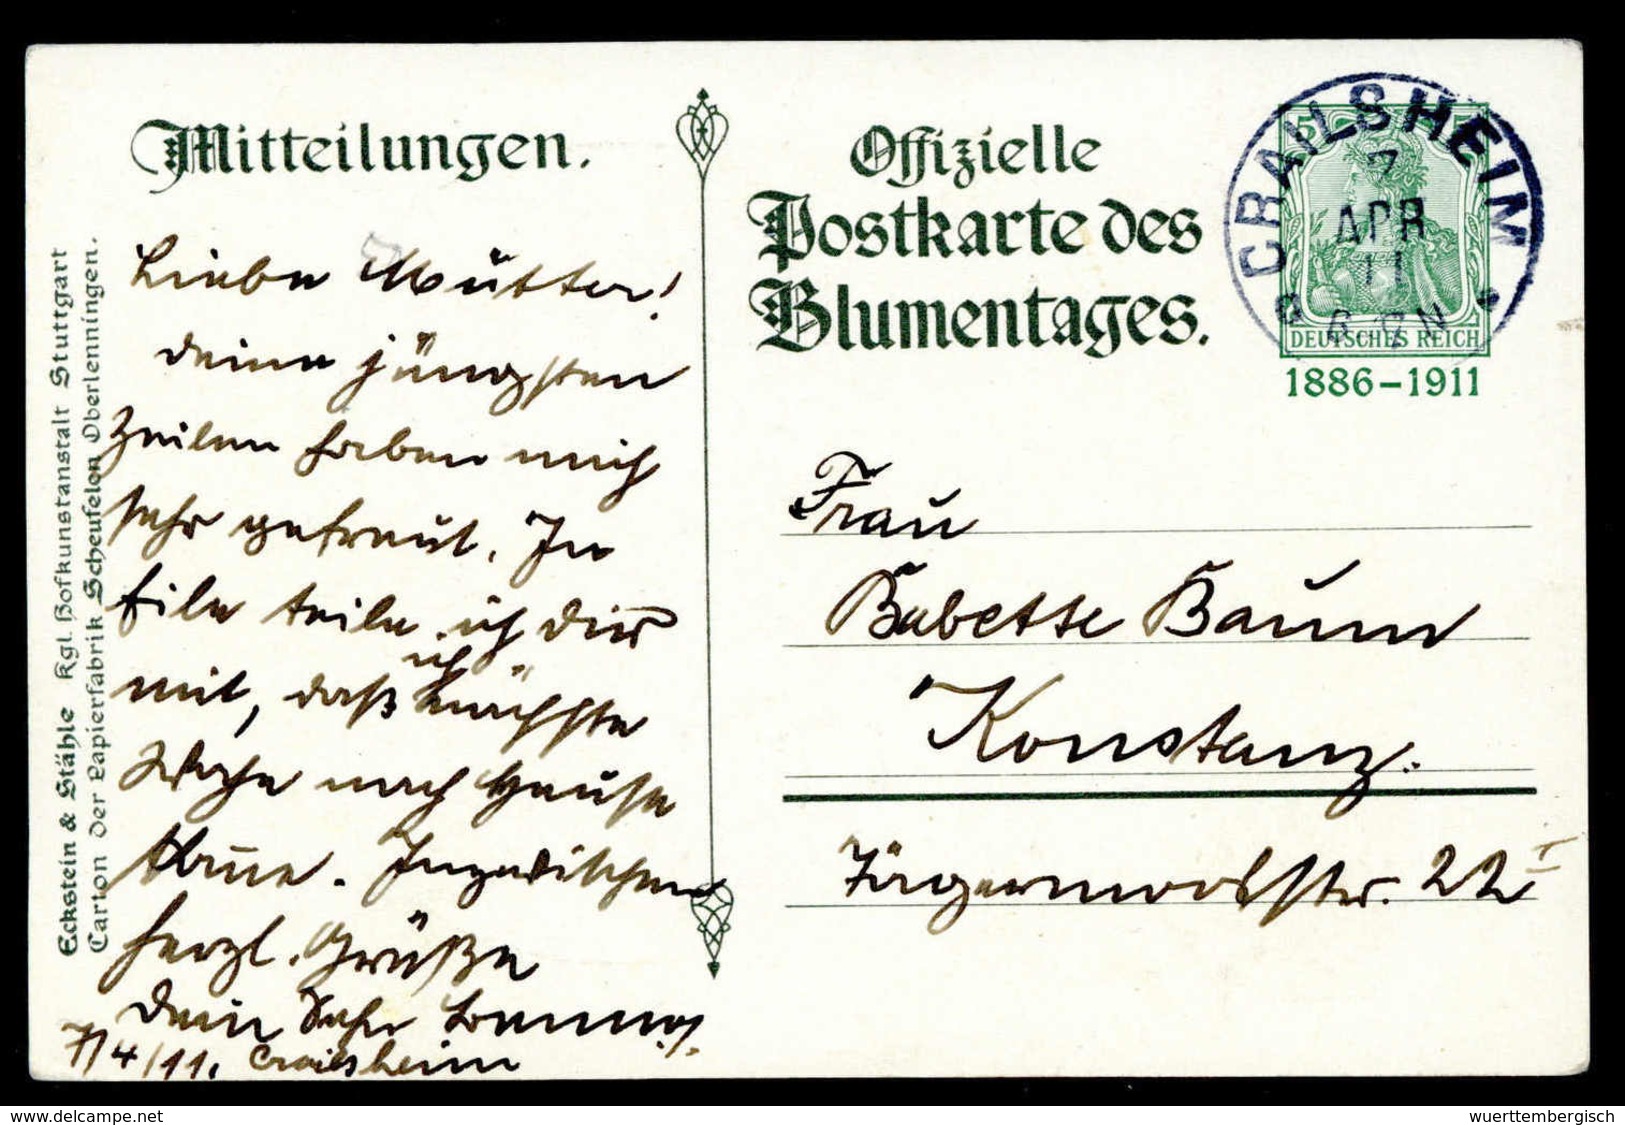 Mitteilungen.
Liebe Mutter!
Deine jüngsten
Zeilen haben mich
sehr gefreut. In
Eile teile ich Dir
mit, daß ich nächste
Woche nach Hause
komme. Inzwischen
herzl. Grüße
Dein Sohn
7/4/11. Crailsheim
Eckstein & Stähle Kgl. Hofkunstanstalt Stuttgart
Carton der Papierfabrik Scheufelen Oberlenningen.
Offizielle
Postkarte des
Blumentages.
CRAILSHEIM
7
APR
11
5 5
DEUTSCHES REICH
1886-1911
Frau
Babette Baum
Konstanz.
Jägerwolfstr. 22 I
www.delcampe.net
wuerttembergisch